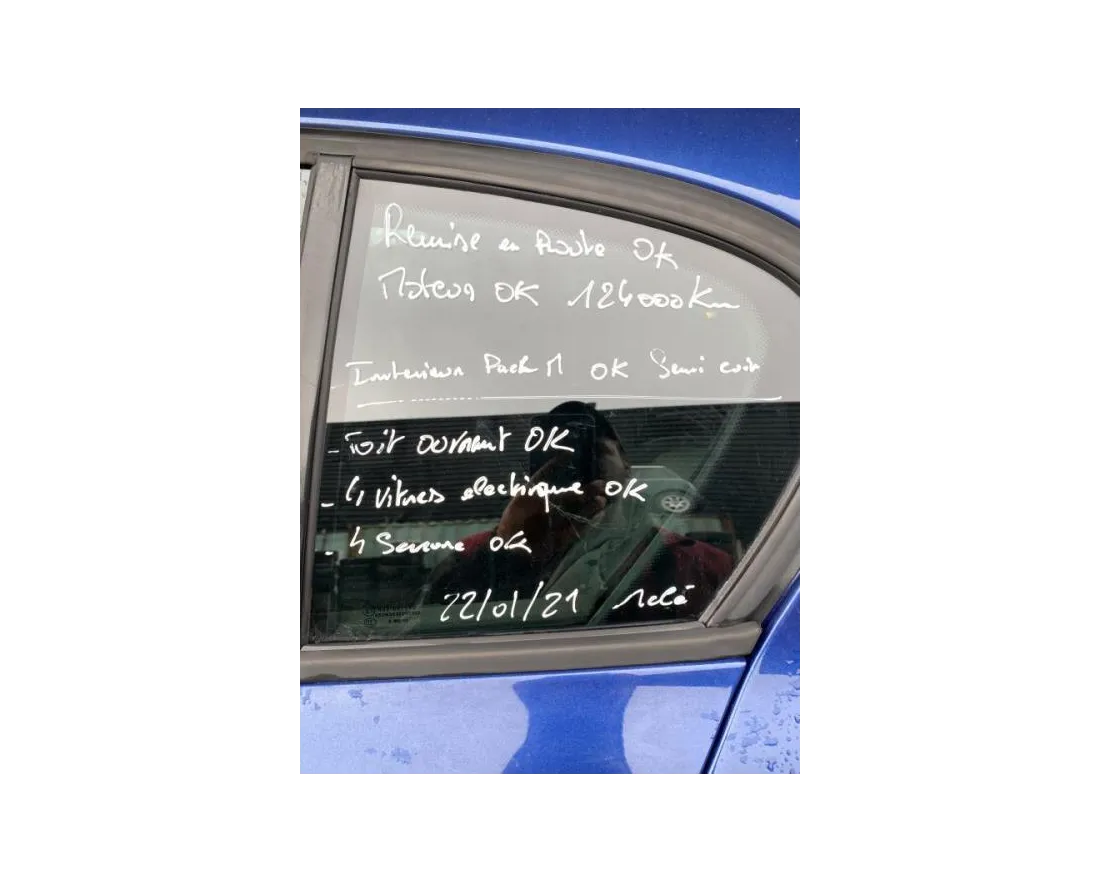 Remise en Route OK
Moteur OK 124000 Km
- Interieur Pack M OK Semi cuir
- Toit ouvrant OK
- 4 vitres electrique OK
- 4 Serrure OK
22/01/21